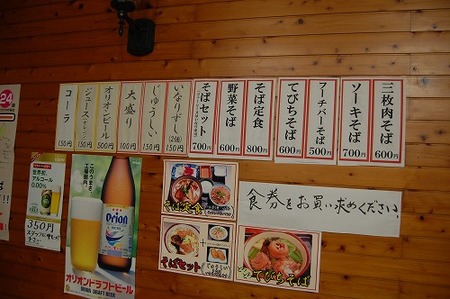 三枚肉そば 600円
ソーキそば 700円
フーチバーそば 500円
てびちそば 600円
そば定食 800円
野菜そば 600円
そばセット 700円
いなりずし (2個) 150円
じゅうしい 150円
大盛り 100円
オリオンビール 500円
ジュース 150円
コーラ 150円
食券をお買い求めください。
このうまさ、
Orion
オリオンドラフトビール
ORION DRAFT BEER
世界初、
アルコール
0.00%
350円
そば定食
そばセット
てびちそば
24